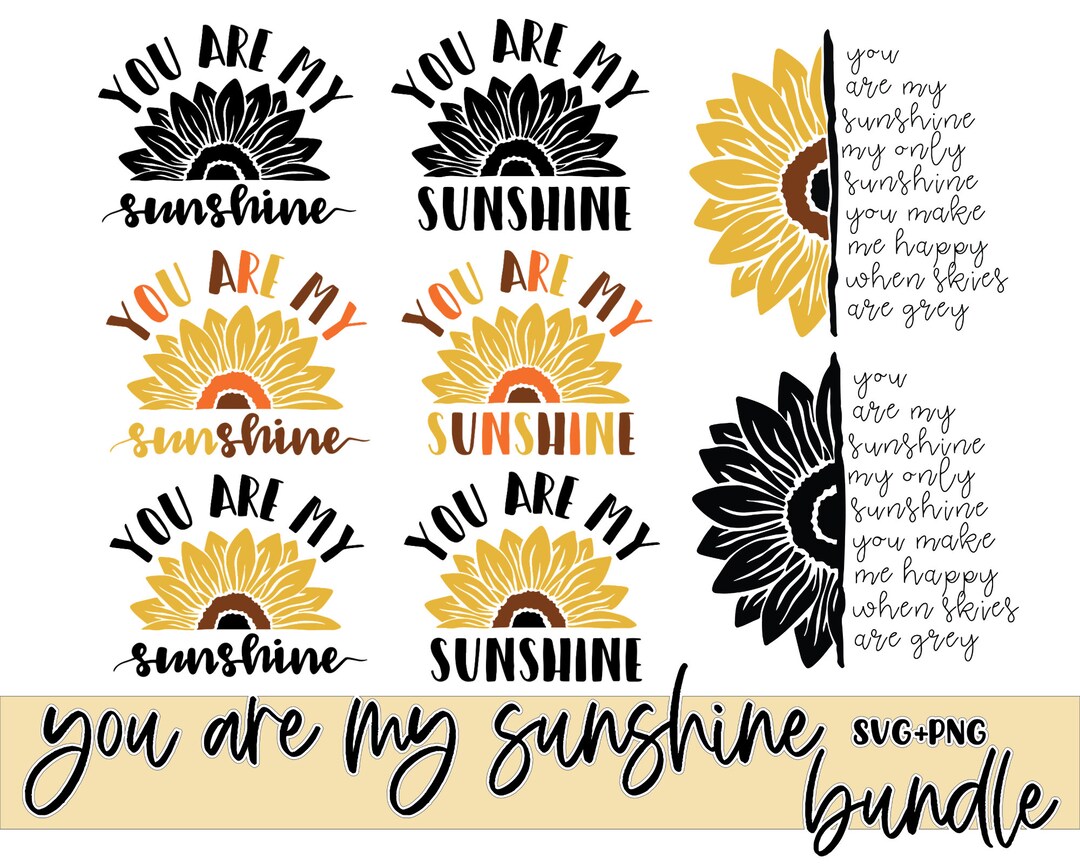 YOU ARE MY
sunshine
YOU ARE MY
SUNSHINE
you
are my
sunshine
my only
sunshine
you make
me happy
when skies
are grey
YOU ARE MY
sunshine
YOU ARE MY
SUNSHINE
YOU ARE MY
sunshine
YOU ARE MY
SUNSHINE
you
are my
sunshine
my only
sunshine
you make
me happy
when skies
are grey
you are my sunshine
SVG+PNG
bundle